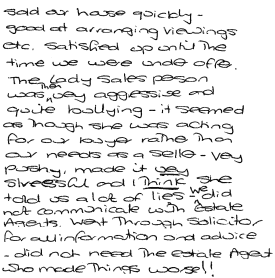 sold our house quickly -
good at arranging viewings
etc. satisfied up until the
time we were under offer.
The lady sales person
was then very aggressive and
quite bullying - it seemed
as though she was acking
for our buyer rather than
our needs as a seller - very
pushy, made it very
stressful and I think she
told us a lot of lies - we did
not communicate with Estate
Agents. Went through solicitor
for all information and advice
- did not need the Estate Agent
who made things worse!!